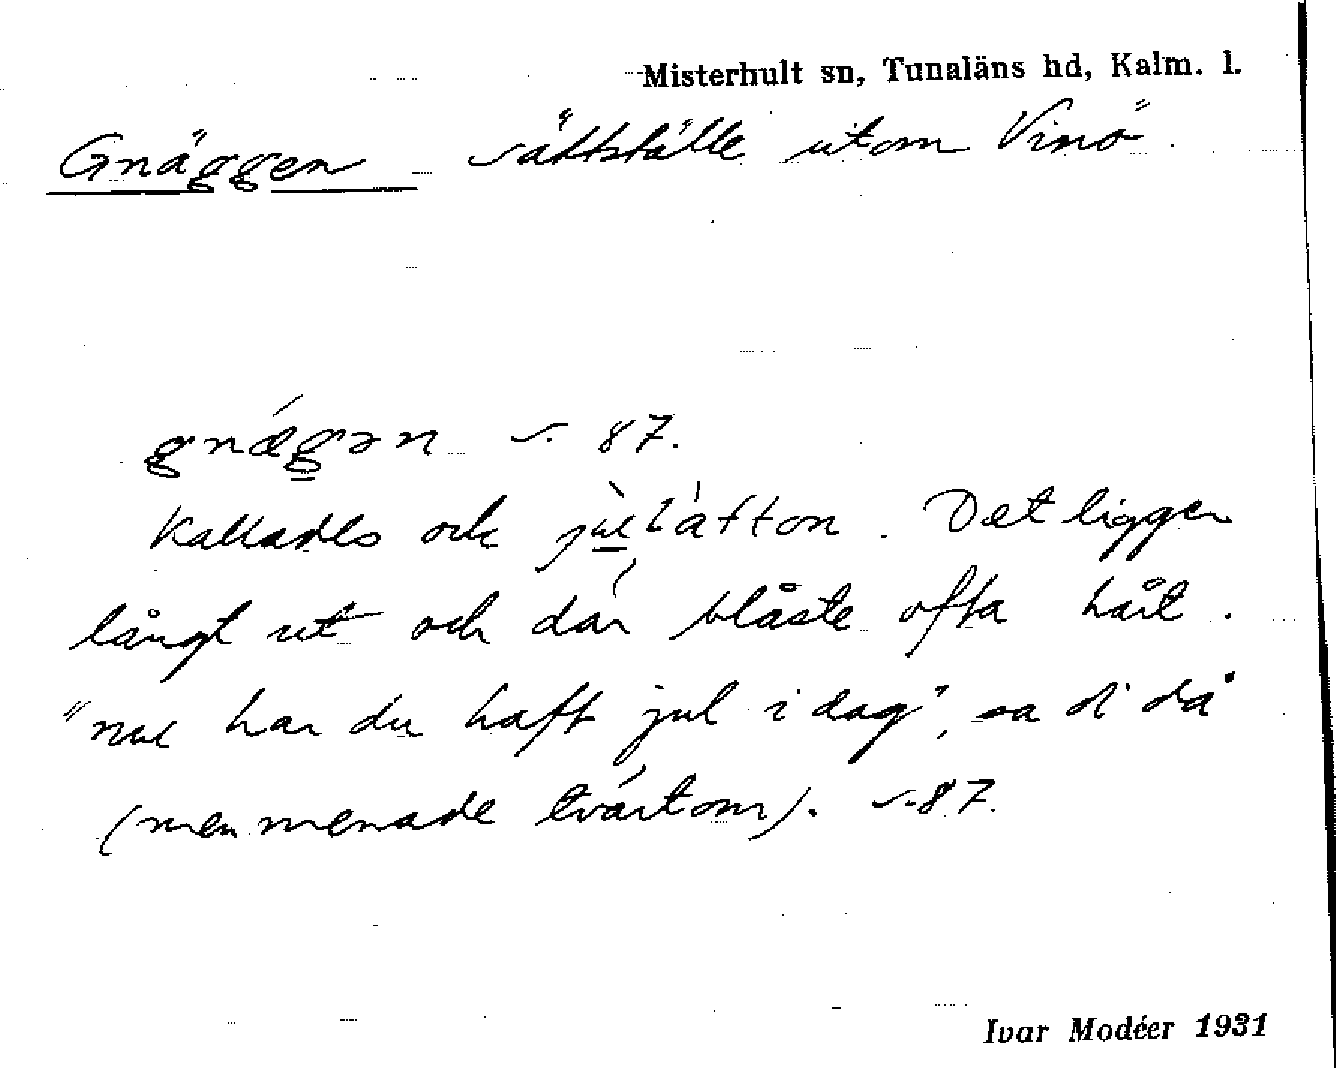 Misterhult sn, Tunaläns hd, Kalm. l.
Gnäggen sättställe utom Vinö.
gnǽgən s. 87.
Kallades ock jùlsätton. Det ligger
långt ut och där blåste ofta hårt.
"nu har du haft jul i dag", sa di då
(men menade tvärtom). s. 87.
Ivar Modéer 1931